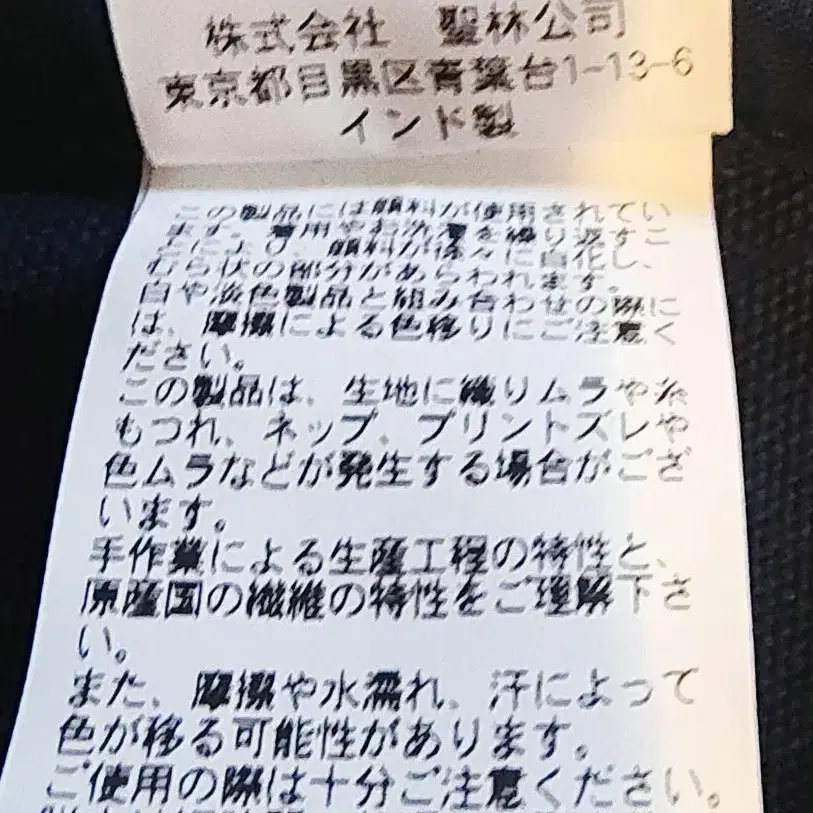 株式会社 聖林公司
東京都目黒区青葉台1-13-6
インド製
この製品には顔料が使用されてい
ます。着用やお洗濯を繰り返すこ
とにより、顔料が徐々に白化し、
むら状の部分があらわれます。
白や淡色製品と組み合わせの際に
は、摩擦による色移りにご注意く
ださい。
この製品は、生地に織りムラや糸
もつれ、ネップ、プリントズレや
色ムラなどが発生する場合がござ
います。
手作業による生産工程の特性と、
原産国の繊維の特性をご理解下さ
い。
また、摩擦や水濡れ、汗によって
色が移る可能性があります。
ご使用の際は十分ご注意ください。